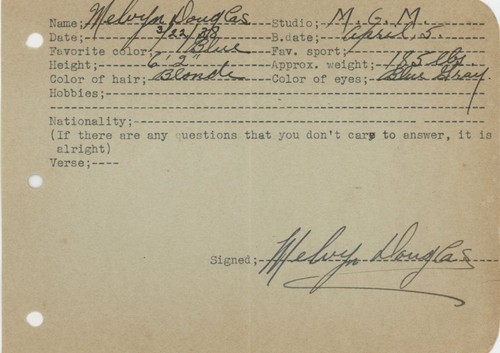 Name; Melvyn Douglas Studio; M. G. M.
Date; 3/22/38 B.date; April, 5.
Favorite color; Blue Fav. sport;
Height; 6' 2" Approx. weight; 185 lbs.
Color of hair; Blonde Color of eyes; Blue Gray
Hobbies;
Nationality;
(If there are any questions that you don't care to answer, it is
alright)
Verse;----
Signed; Melvyn Douglas